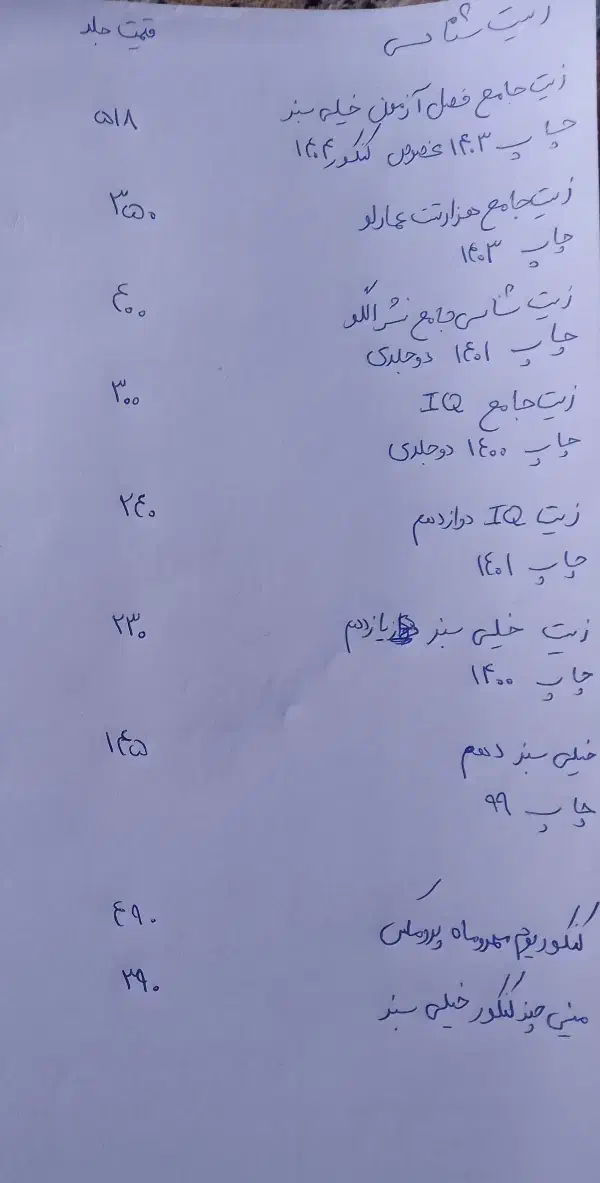 زیست شناسی قیمت جلد
زیست جامع فصل آزمون خیلی سبز ۵۱۸
چاپ ۱۴۰۳ مخصوص کنکور ۱۴۰۴
زیست جامع هزارتست عمارلو ۳۵۰
چاپ ۱۴۰۳
زیست شناسی جامع نشر الگو ۴۰۰
چاپ ۱۴۰۱ دوجلدی
زیست جامع IQ ۳۰۰
چاپ ۱۴۰۰ دوجلدی
زیست IQ دوازدهم ۲۴۰
چاپ ۱۴۰۱
زیست خیلی سبز یازدهم ۲۳۰
چاپ ۱۴۰۰
خیلی سبز دهم ۱۴۵
چاپ ۹۹
کنکوریوم مهروماه ۴۹۰
مینی کنکور خیلی سبز ۲۹۰